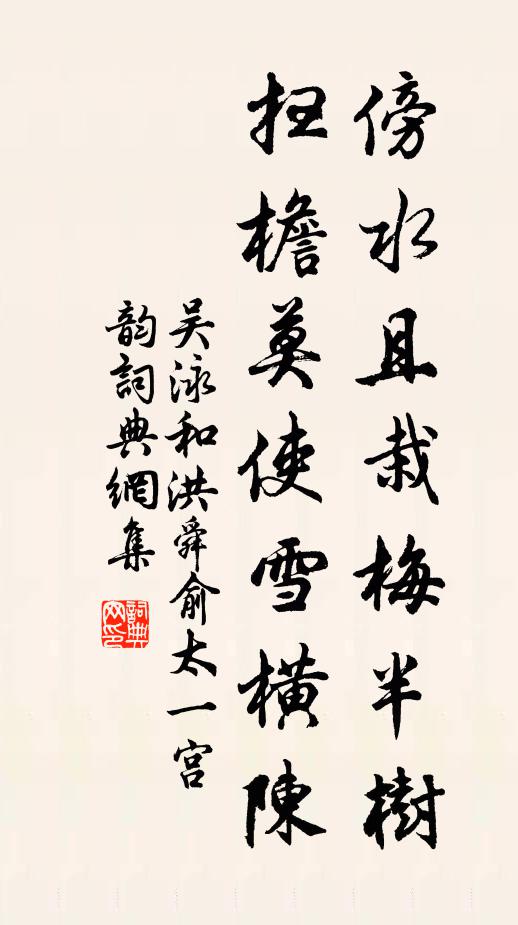 傍水且栽梅半樹
拄檐莫使雪橫陳
吴泳和洪舜俞太一宫
韵詞典網集
詞典网印